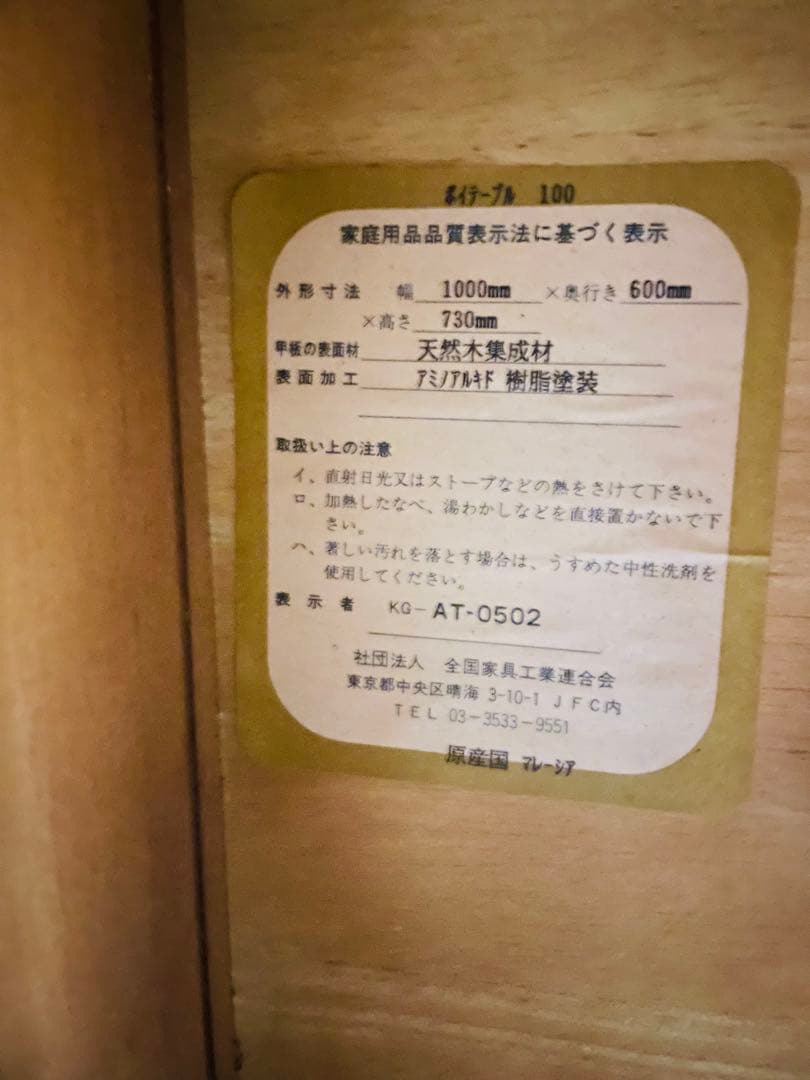 ポイテーブル 100
家庭用品品質表示法に基づく表示
外形寸法 幅 1000mm ×奥行き 600mm
×高さ 730mm
甲板の表面材 天然木集成材
表面加工 アミノアルキド 樹脂塗装
取扱い上の注意
イ、直射日光又はストーブなどの熱をさけて下さい。
ロ、加熱したなべ、湯わかしなどを直接置かないで下
さい。
ハ、著しい汚れを落とす場合は、うすめた中性洗剤を
使用してください。
表示者 KG-AT-0502
社団法人 全国家具工業連合会
東京都中央区晴海 3-10-1 JFC内
TEL 03-3533-9551
原産国 マレーシア